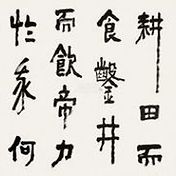 耕田而
食鑿井
而飲帝力
於我何